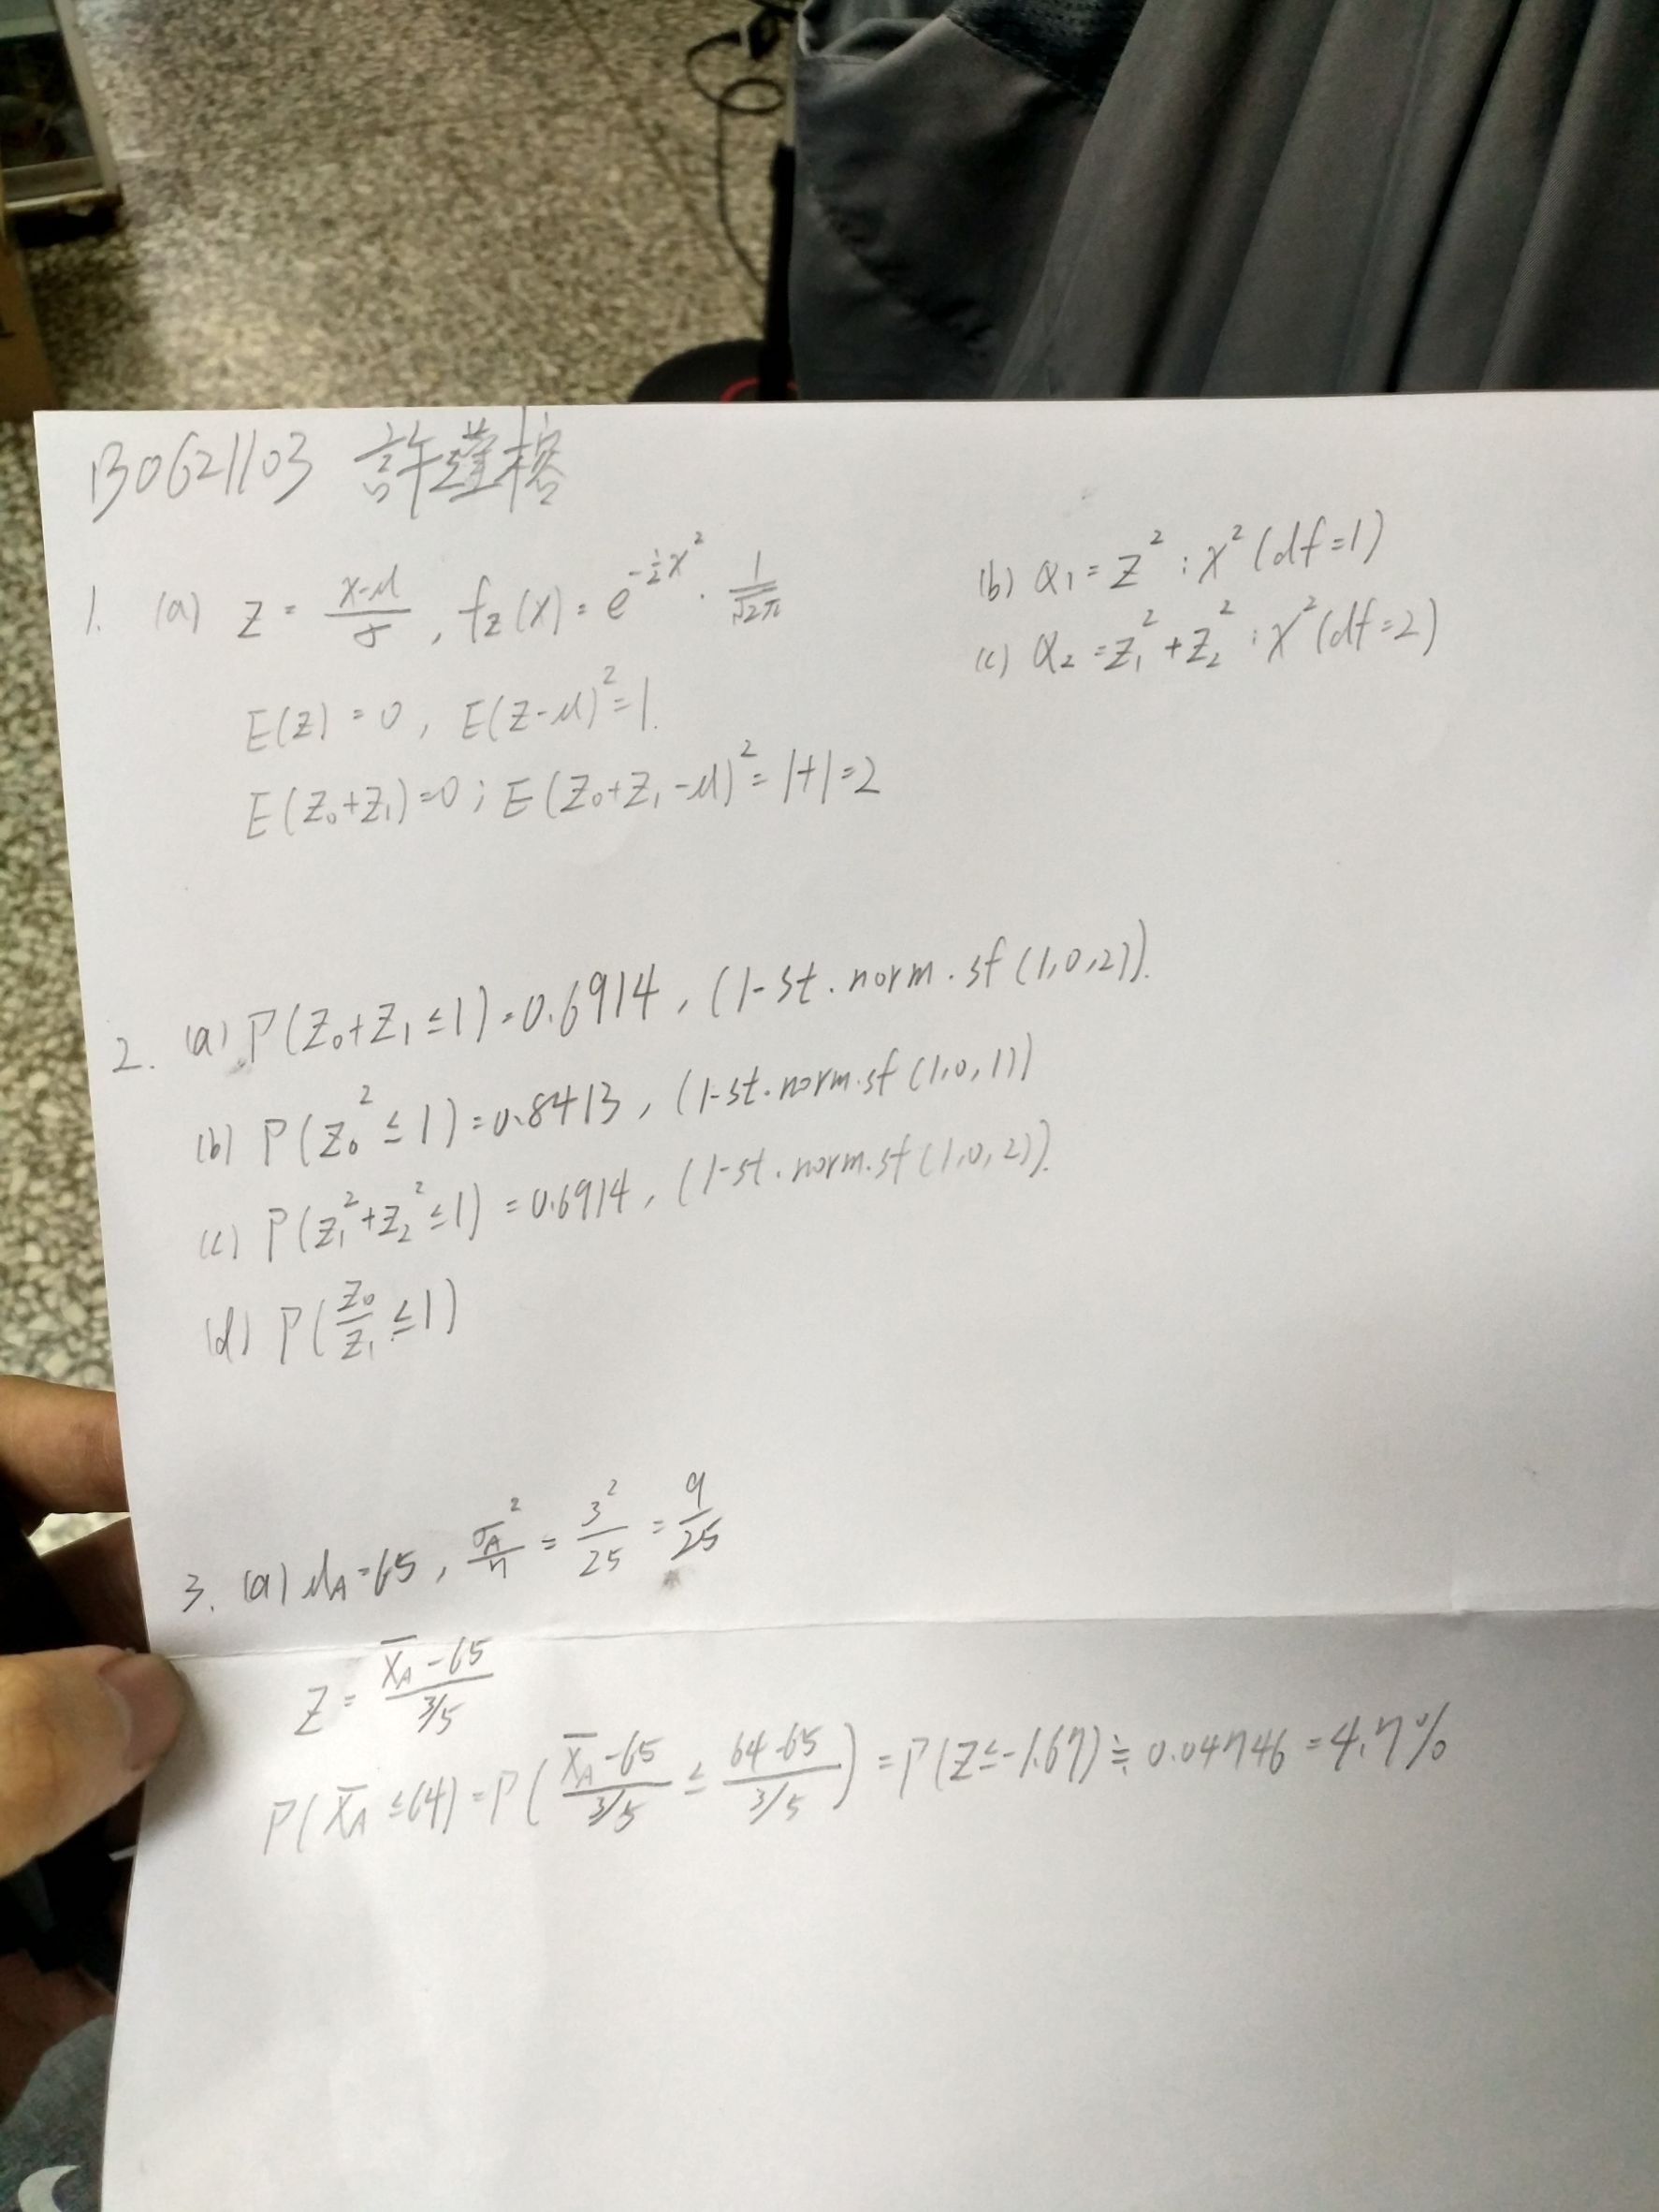 B0621103 許瑾榕
1. (a) Z = (x-μ)/σ , f_Z(x) = e^(-½x²) · 1/√2π
E(Z) = 0 , E(Z-μ)² = 1.
E(Z₀+Z₁) = 0 ; E(Z₀+Z₁-μ)² = 1+1 = 2
(b) Q₁ = Z² : χ² (df=1)
(c) Q₂ = Z₁² + Z₂² : χ² (df=2)
2. (a) P(Z₀+Z₁ ≤ 1) = 0.6914 , (1-st.norm.sf(1,0,2)).
(b) P(Z₀² ≤ 1) = 0.8413 , (1-st.norm.sf(1,0,1))
(c) P(Z₁²+Z₂² ≤ 1) = 0.6914 , (1-st.norm.sf(1,0,2)).
(d) P(Z₀/Z₁ ≤ 1)
3. (a) μ_A = 65 , σ_A²/n = 3²/25 = 9/25
Z = (X̄_A - 65)/(3/5)
P(X̄_A ≤ 64) = P((X̄_A - 65)/(3/5) ≤ (64-65)/(3/5)) = P(Z ≤ -1.67) ≒ 0.04746 = 4.7%